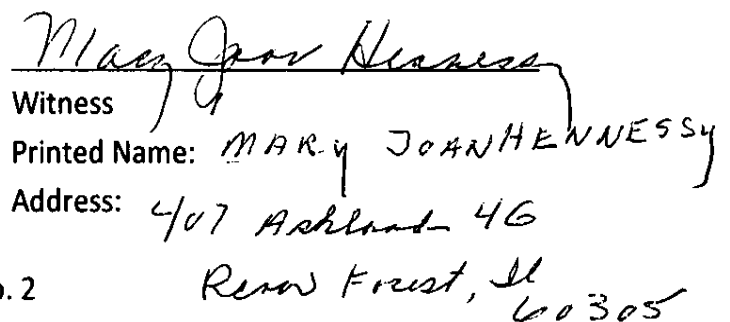 Mary Joan Hennessy
Witness
Printed Name: MARY JOAN HENNESSY
Address: 407 Ashland 4G
River Forest, Il
60305
. 2